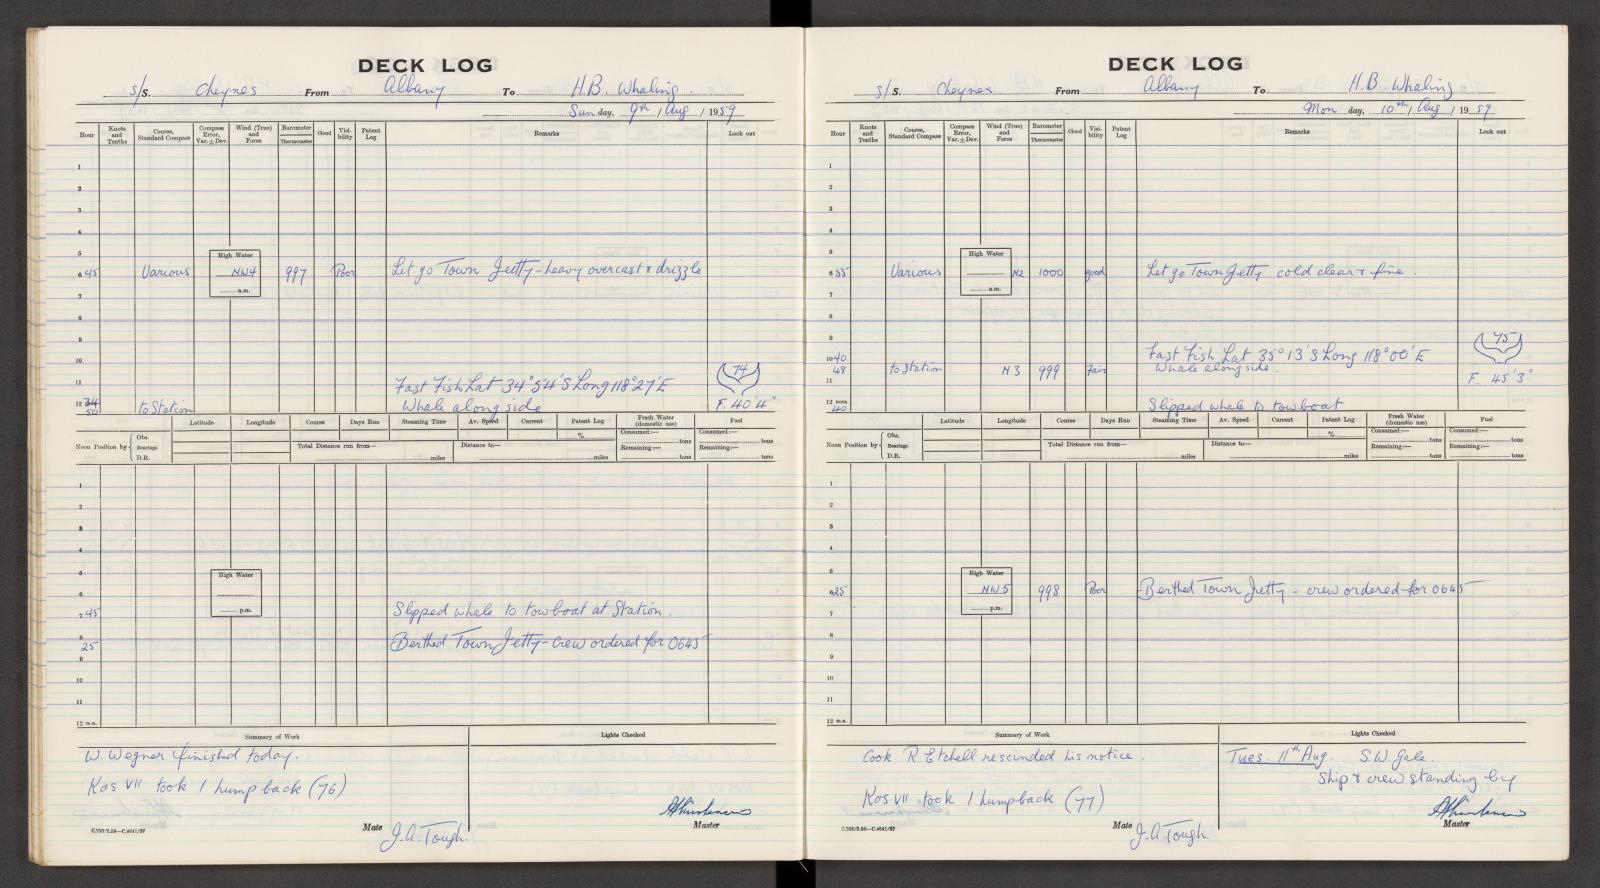 DECK LOG
s/S. Cheynes From Albany To H.B. Whaling.
Sun day, 9th / Aug / 1959
Hour Knots and Tenths Course, Standard Compass Compass Error, Var. ± Dev. Wind (True) and Force Barometer Thermometer Cloud Visibility Patent Log Remarks Look out
1
2
3
4
5
High Water
6 45 Various NW4 997 Poor Let go Town Jetty - heavy overcast & drizzle
a.m.
7
8
9
10
74
11 Fast Fish Lat 34°54'S Long 118°27'E
12 34 F. 40'4"
50 to Station Whale along side
Latitude Longitude Course Days Run Steaming Time Av. Speed Current Patent Log Fresh Water (domestic use) Fuel
% Consumed:— tons Consumed:— tons
Noon Position by Obs. Bearings D.R. Total Distance run from— miles Distance to— miles Remaining:— tons Remaining:— tons
1
2
3
4
5
High Water
6
p.m.
7 45 Slipped whale to towboat at Station.
8
25 Berthed Town Jetty - crew ordered for 0645
9
10
11
12 m.n.
Summary of Work Lights Checked
W. Wegner finished today.
Kos VII took 1 humpback (76)
C.705/2.58—C.4641/57 Mate J.A. Tough. Master
DECK LOG
s/S. Cheynes. From Albany To H.B. Whaling
Mon day, 10th / Aug / 1959
Hour Knots and Tenths Course, Standard Compass Compass Error, Var. ± Dev. Wind (True) and Force Barometer Thermometer Cloud Visibility Patent Log Remarks Look out
1
2
3
4
5
High Water
6 55 Various N2 1000 good Let go Town Jetty cold clear & fine.
a.m.
7
8
9
75
10 40 Fast Fish Lat 35°13'S Long 118°00'E
48 to Station N 3 999 Fair Whale alongside.
11 F. 45'3"
12 noon
40 Slipped whale to towboat
Latitude Longitude Course Days Run Steaming Time Av. Speed Current Patent Log Fresh Water (domestic use) Fuel
% Consumed:— tons Consumed:— tons
Noon Position by Obs. Bearings D.R. Total Distance run from— miles Distance to— miles Remaining:— tons Remaining:— tons
1
2
3
4
5
High Water
6 25 NW5 998 Poor Berthed Town Jetty - crew ordered for 0645
p.m.
7
8
9
10
11
12 m.n.
Summary of Work Lights Checked
Cook R. Etchell rescinded his notice.
Tues. 11th Aug. S.W. Gale.
Ship & crew standing by
Kos VII took 1 humpback (77)
C.705/2.58—C.4641/57 Mate J.A. Tough. Master